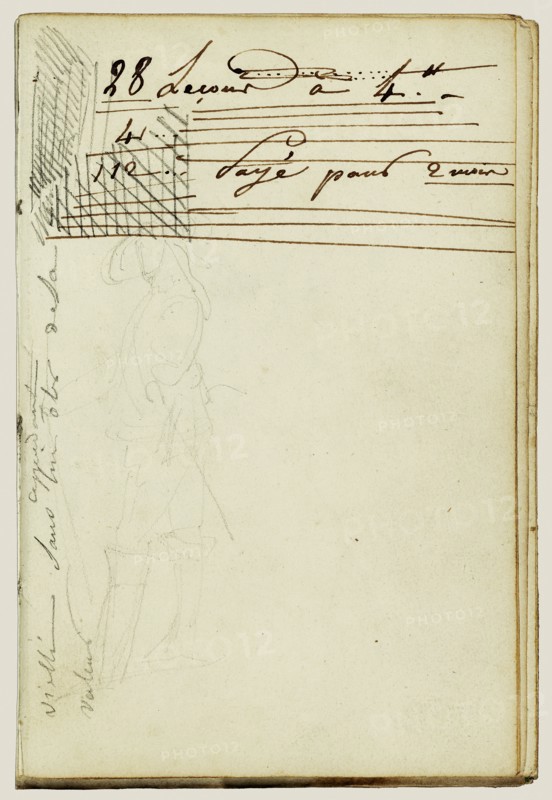 28 Leçons à 4"
4
112 payé pour 2 mois
vieilli sans
cependant
rien ôter de sa
valeur
PHOTO12